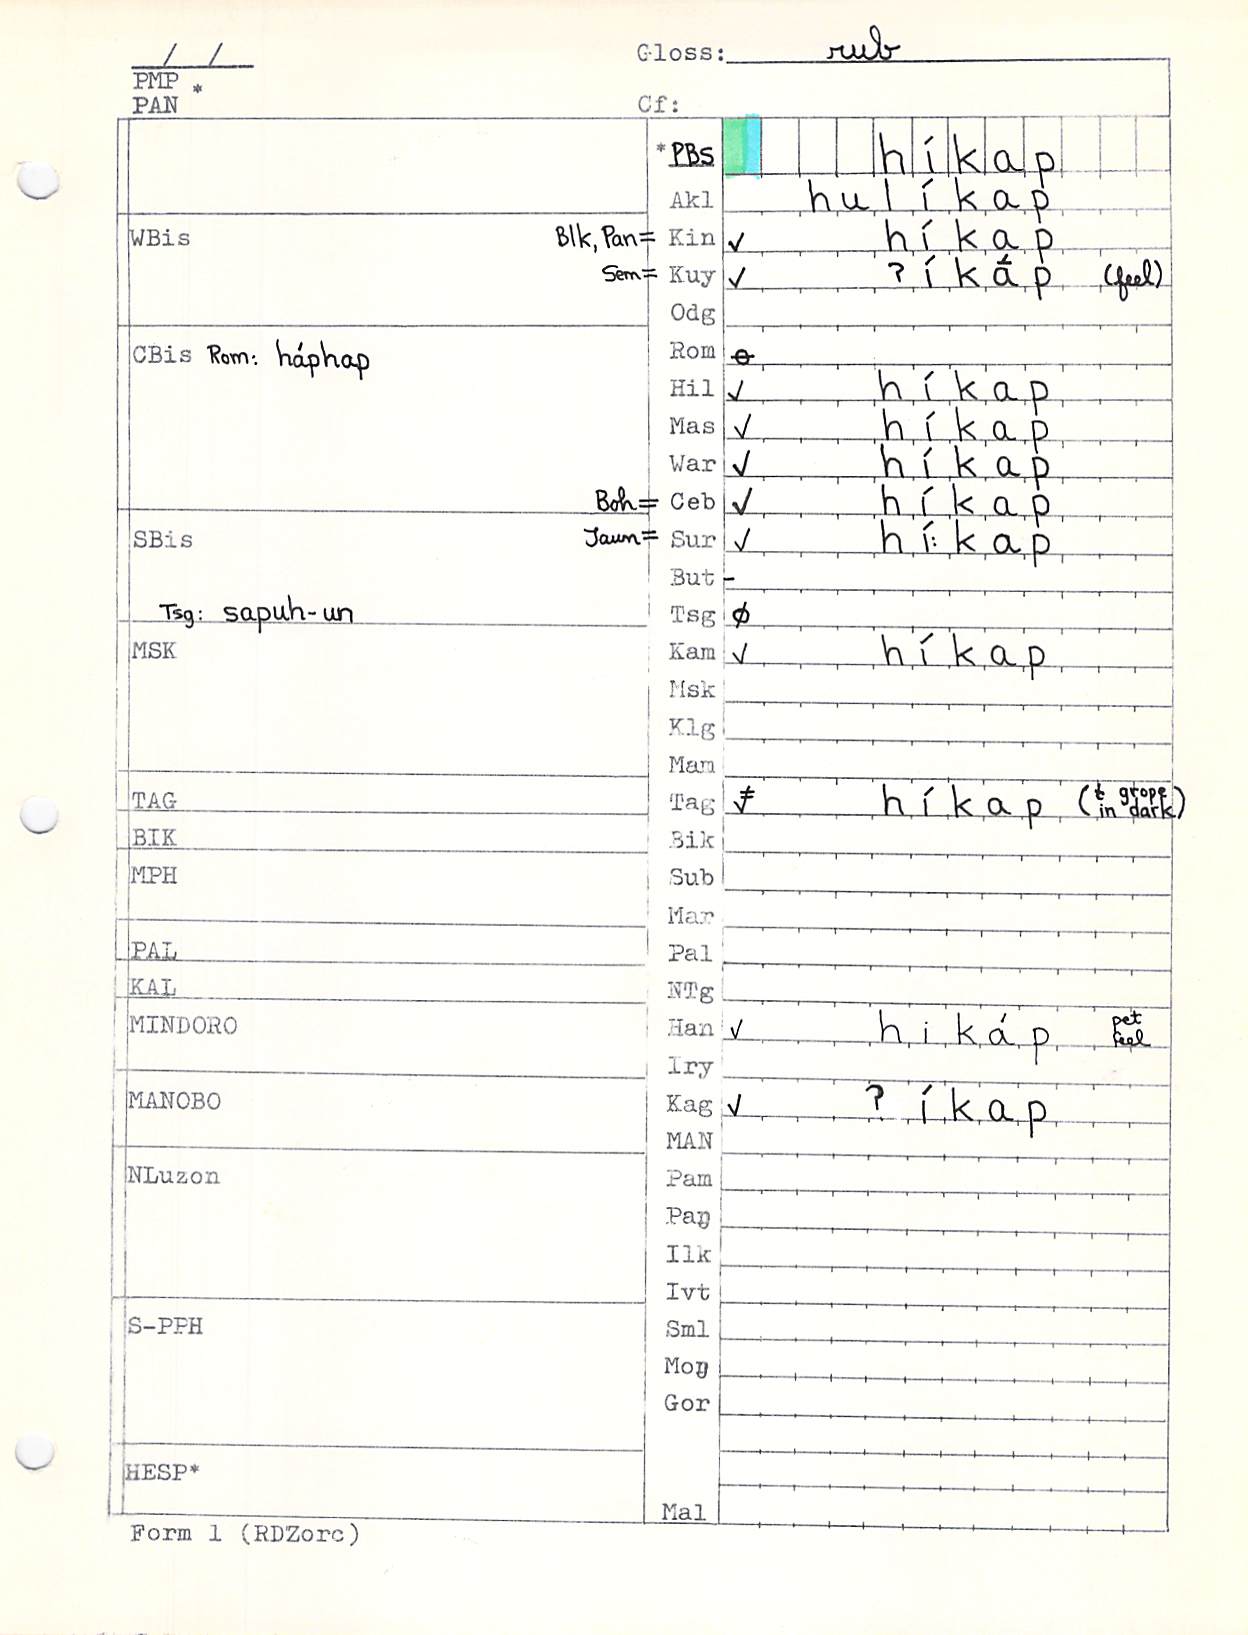 __/__/__
Gloss: rub
PMP *
PAN
Cf:
*PBS híkap
Akl hulíkap
WBis
Blk, Pan= Kin ✓ híkap
Sem= Kuy ✓ ʔíkáp (feel)
Odg
CBis Rom: háphap
Rom ⊖
Hil ✓ híkap
Mas ✓ híkap
War ✓ híkap
Boh= Ceb ✓ híkap
SBis
Jaun= Sur ✓ hí:kap
But -
Tsg: sapuh-un
Tsg ∅
MSK
Kam ✓ híkap
Msk
Klg
Man
TAG
Tag híkap (t grope in dark)
BIK
Bik
MPH
Sub
Mar
PAL
Pal
KAL
NTg
MINDORO
Han ✓ hikáp pet feel
Iry
MANOBO
Kag ✓ ʔíkap
MAN
NLuzon
Pam
Paŋ
Ilk
Ivt
S-PPH
Sml
Moŋ
Gor
HESP*
Mal
Form 1 (RDZorc)